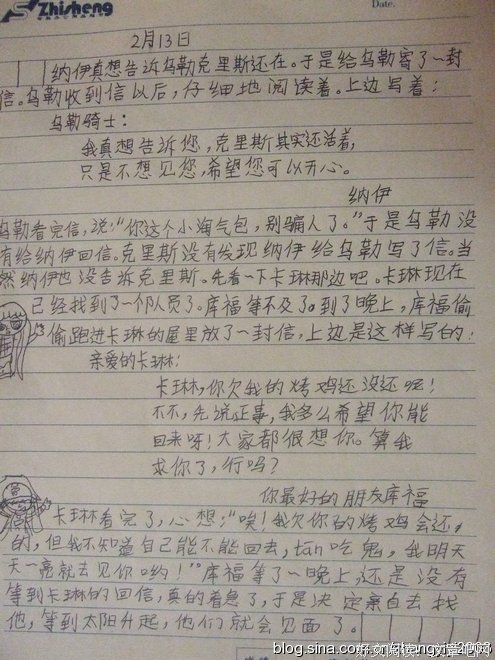 Zhisheng
Date.
2月13日
纳伊真想告诉乌勒克里斯还在。于是给乌勒寄了一封
信。乌勒收到信以后，仔细地阅读着。上边写着：
乌勒骑士：
我真想告诉您，克里斯其实还活着，
只是不想见您，希望您可以开心。
纳伊
乌勒看完信，说：“你这个小淘气包，别骗人了。”于是乌勒没
有给纳伊回信。克里斯没有发现纳伊给乌勒写了信。当
然纳伊也没告诉克里斯。先看一下卡琳那边吧。卡琳现在
已经找到了一个队员了。库福等不及了。到了晚上，库福偷
偷跑进卡琳的屋里放了一封信，上边是这样写的：
亲爱的卡琳：
卡琳，你欠我的烤鸡还没还呢！
不不，先说正事，我多么希望你能
回来呀！大家都很想你。算我
求你了，行吗？
你最好的朋友库福
卡琳看完了，心想：“唉！我欠你的烤鸡会还
的，但我不知道自己能不能回去，tan吃鬼，我明天
天一亮就去见你哟！”库福等了一晚上还是没有
等到卡琳的回信，真的着急了，于是决定亲自去找
他，等到太阳升起，他们就会见面了。